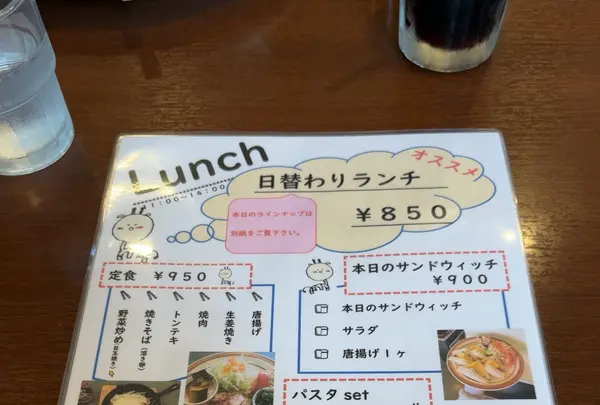 Lunch
11:00~14:00
オススメ
日替わりランチ
¥850
本日のラインナップは
別紙をご覧下さい。
定食 ¥950
唐揚げ
生姜焼き
焼肉
トンテキ
焼きそば(温き卵)
野菜炒め
目玉焼き
本日のサンドウィッチ
¥900
本日のサンドウィッチ
サラダ
唐揚げ1ヶ
パスタ set